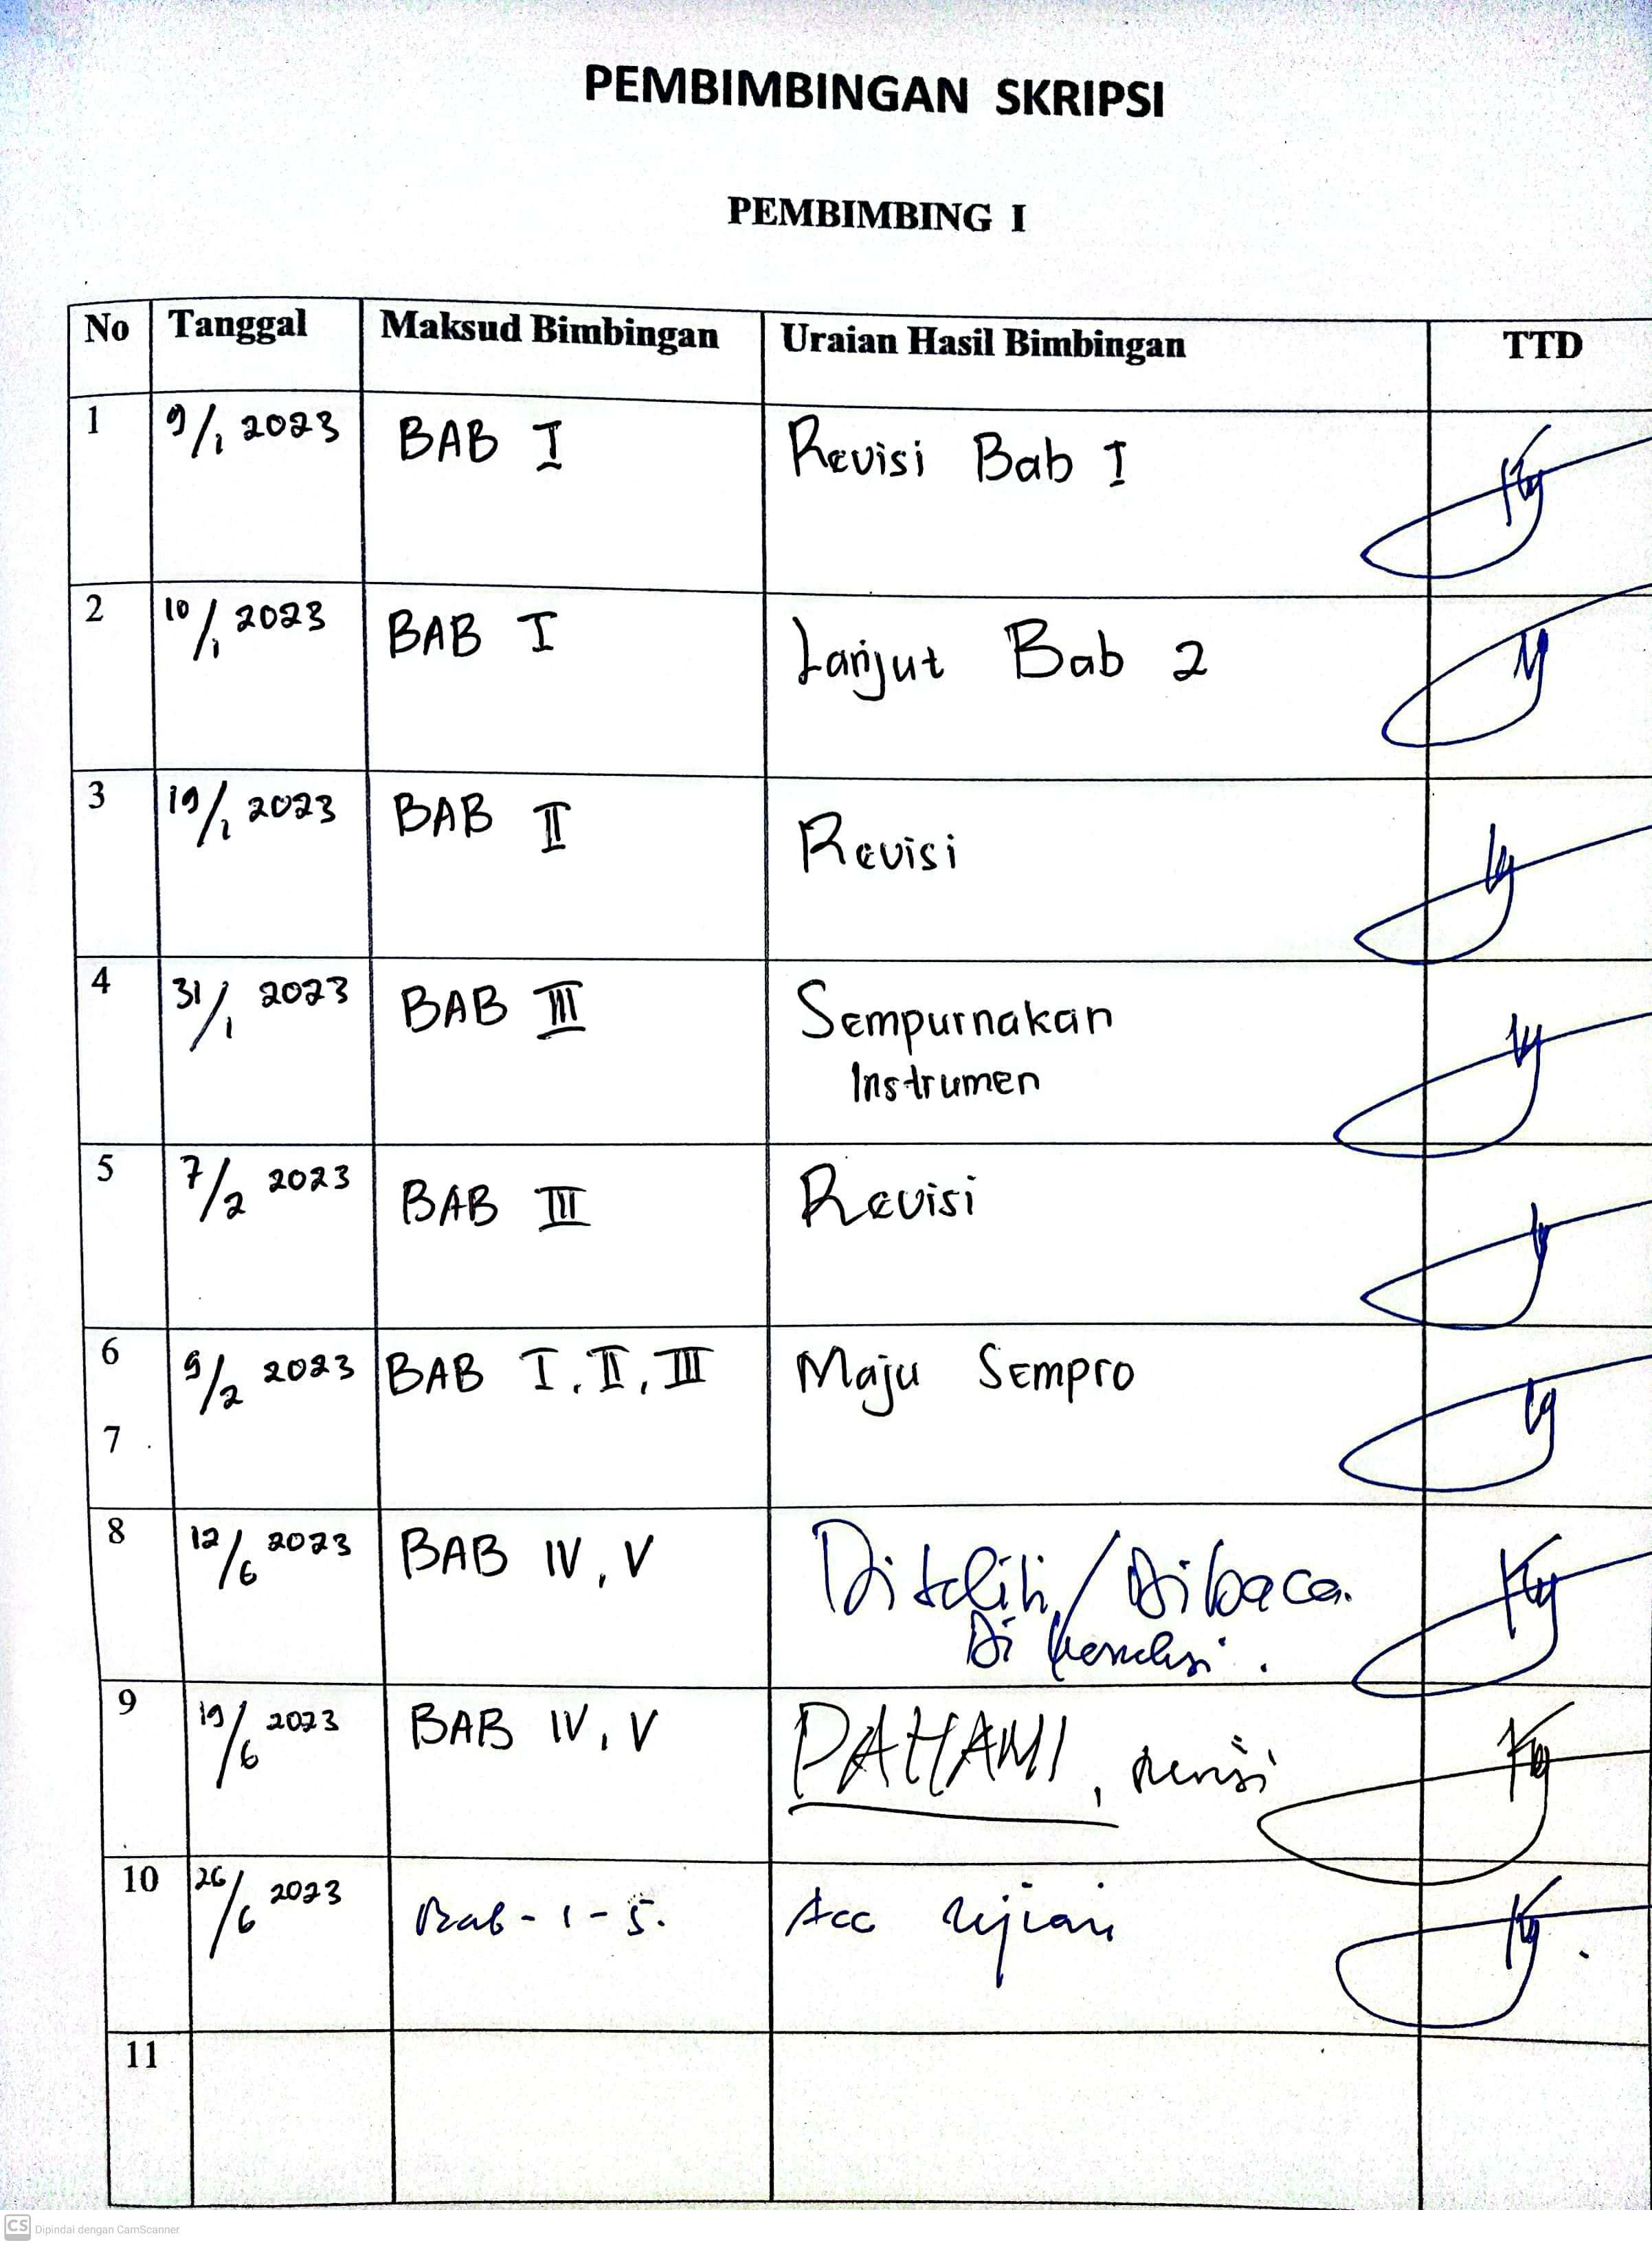 PEMBIMBINGAN SKRIPSI
PEMBIMBING I
No Tanggal Maksud Bimbingan Uraian Hasil Bimbingan TTD
1 9/1 2023 BAB I Revisi Bab I
2 10/1 2023 BAB I Lanjut Bab 2
3 19/1 2023 BAB II Revisi
4 31/1 2023 BAB III Sempurnakan
Instrumen
5 7/2 2023 BAB III Revisi
6 9/2 2023 BAB I, II, III Maju Sempro
7
8 12/6 2023 BAB IV, V Diteliti / Dibaca.
Di
9 19/6 2023 BAB IV, V PAHAMI, revisi
10 26/6 2023 Bab - 1 - 5. Acc Ujian
11
CS Dipindai dengan CamScanner